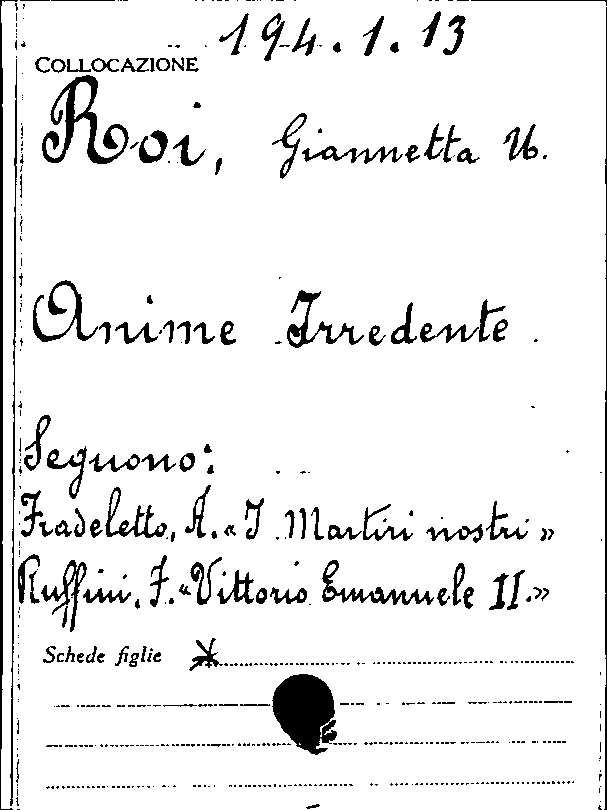 194.1.13
COLLOCAZIONE
Roi, Giannetta U.
Anime Irredente.
Seguono:
Fradeletto, A. « I Martiri nostri »
Ruffini, F. « Vittorio Emanuele II. »
Schede figlie